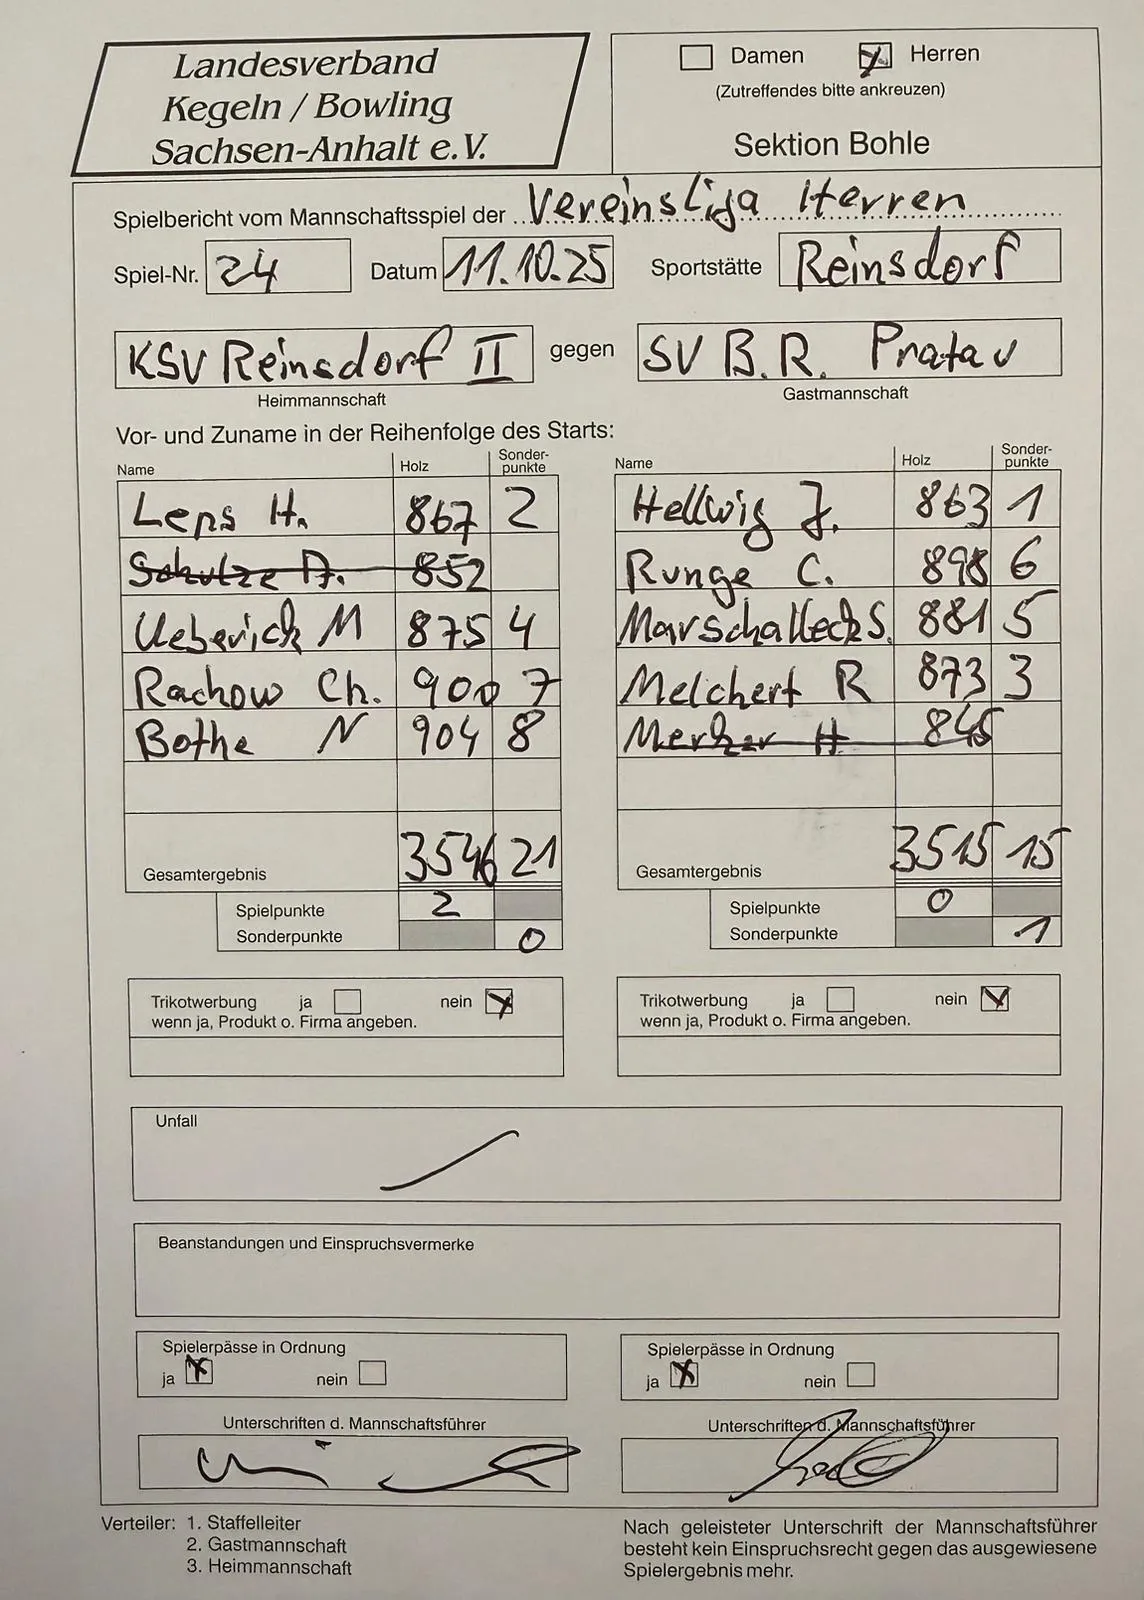 Landesverband
Kegeln / Bowling
Sachsen-Anhalt e.V.
Damen Herren
(Zutreffendes bitte ankreuzen)
Sektion Bohle
Spielbericht vom Mannschaftsspiel der Vereinsliga Herren
Spiel-Nr. 24 Datum 11.10.25 Sportstätte Reinsdorf
KSV Reinsdorf II gegen SV B.R. Pratau
Heimmannschaft Gastmannschaft
Vor- und Zuname in der Reihenfolge des Starts:
Name Holz Sonder-punkte Name Holz Sonder-punkte
Leps H. 867 2 Hellwig J. 863 1
Schulze A. 852 Runge C. 898 6
Ueberick M 875 4 Marschalleck S. 881 5
Rachow Ch. 900 7 Melchert R 873 3
Bothe N 904 8 Merker H 845
Gesamtergebnis 3546 21 Gesamtergebnis 3515 15
Spielpunkte 2 Spielpunkte 0
Sonderpunkte 0 Sonderpunkte 1
Trikotwerbung ja nein Trikotwerbung ja nein
wenn ja, Produkt o. Firma angeben. wenn ja, Produkt o. Firma angeben.
Unfall
Beanstandungen und Einspruchsvermerke
Spielerpässe in Ordnung Spielerpässe in Ordnung
ja nein ja nein
Unterschriften d. Mannschaftsführer Unterschriften d. Mannschaftsführer
Verteiler: 1. Staffelleiter
2. Gastmannschaft
3. Heimmannschaft
Nach geleisteter Unterschrift der Mannschaftsführer
besteht kein Einspruchsrecht gegen das ausgewiesene
Spielergebnis mehr.